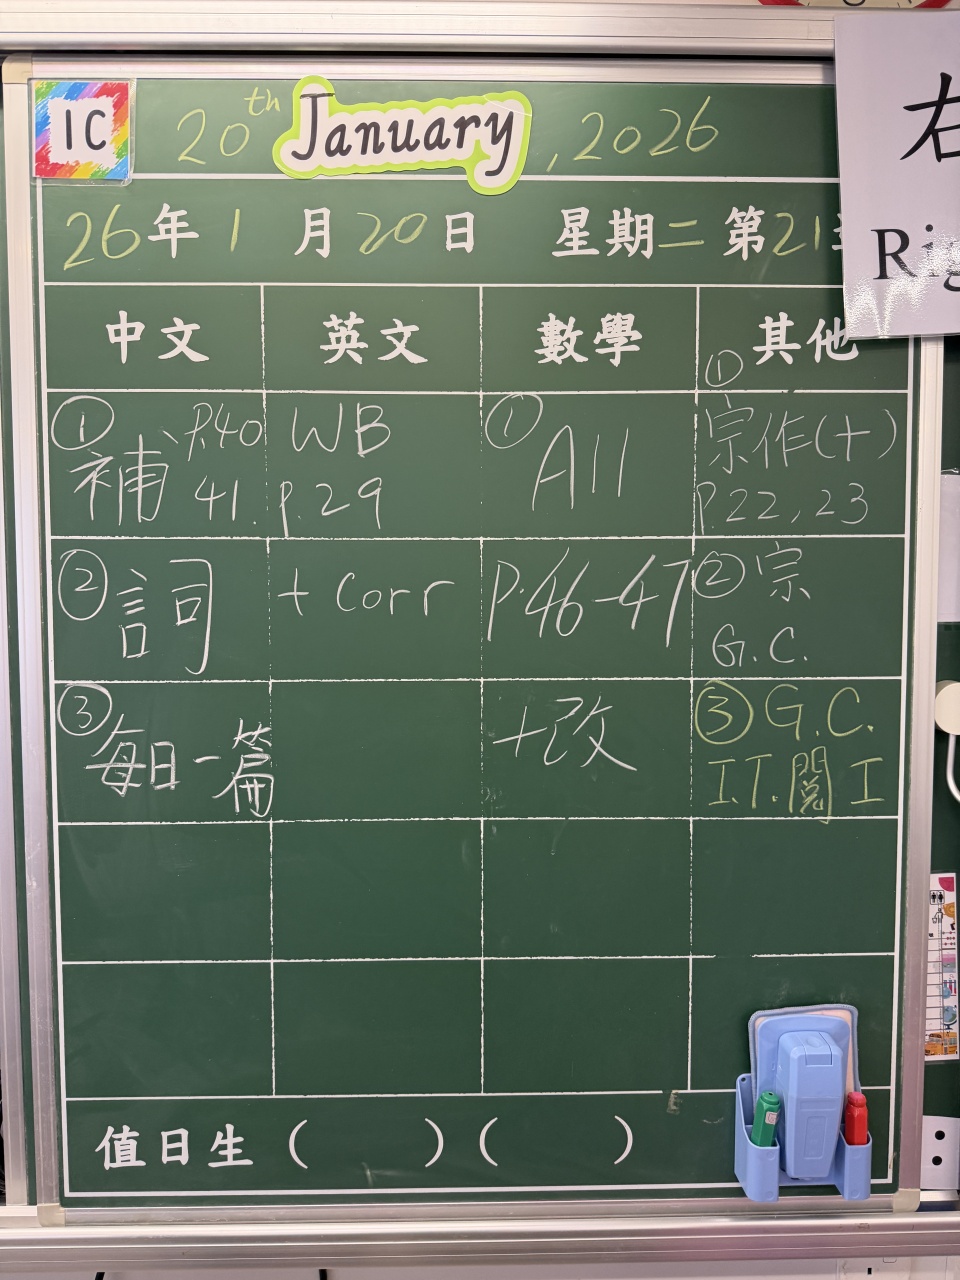 1C
20th January, 2026
26年1月20日 星期二 第21
中文 英文 數學 其他
① 補 P.40
41.
② 詞
③ 每日一篇
WB
P.29
+ Corr
① All
P.46-47
+改
①
宗作(十)
P.22, 23
② 宗
G.C.
③ G.C.
I.T. 閱 I
值日生 ( ) ( )
右
Rig